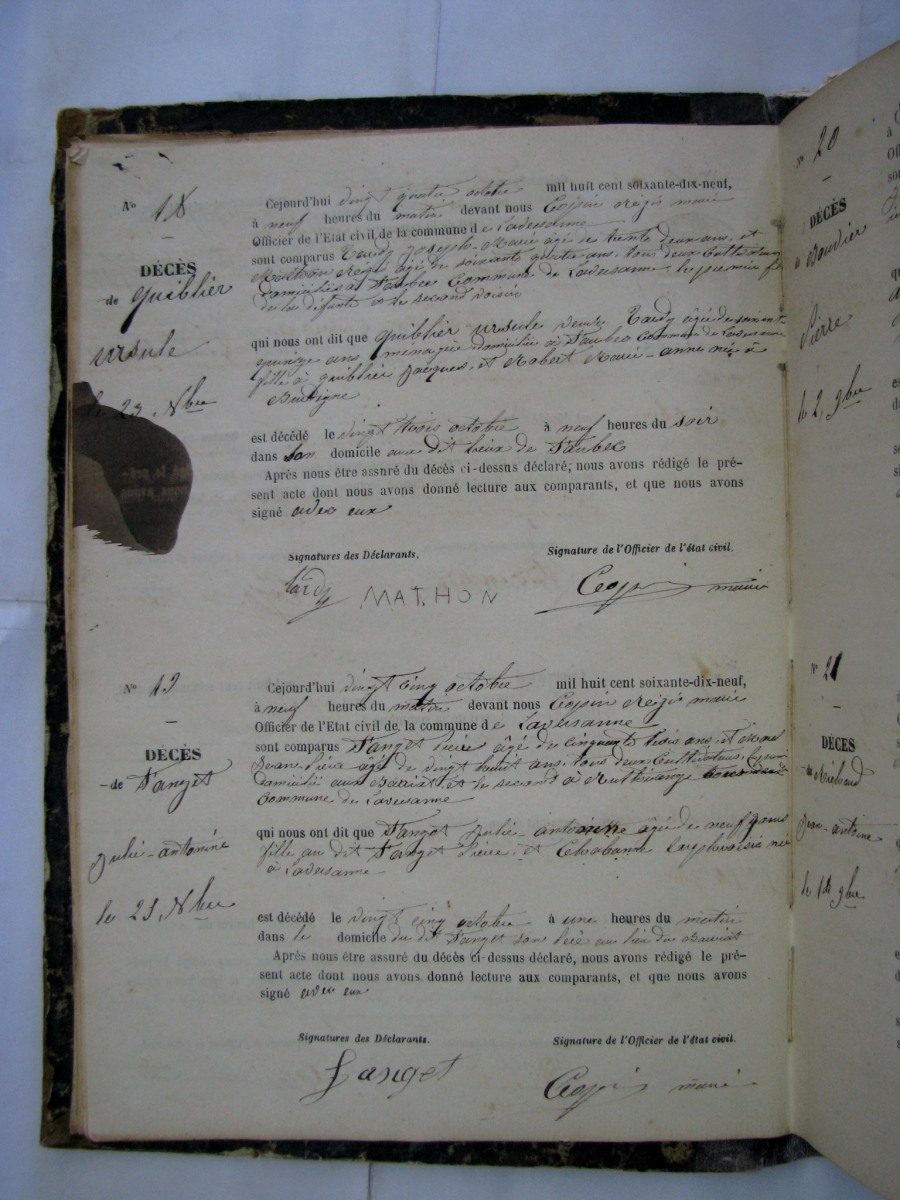 No 18
DÉCÈS
de Guiblier
Ursule
le 23, Nbre
Cejourd'hui vingt quatre octobre mil huit cent soixante-dix-neuf,
à neuf heures du matin devant nous Crespin Régis maire
Officier de l'Etat civil, de la commune de Laversanne
sont comparus Tardy Joseph-Marie âgé de trente deux ans, et
Mathon Régis âgé de soixante quatre ans, tous deux cultivateurs
domiciliés à Taubec Commune de Laversanne, le premier fils
de la défunte et le second voisin
qui nous ont dit que Guiblier Ursule veuve Tardy âgée de soixante
quinze ans, ménagère domiciliée à Taubec commune de Laversanne
fille à Guiblier Jacques, et Robert Marie-anne née à
Burdigne
est décédé le vingt trois octobre à neuf heures du soir
dans son domicile aux dit lieux de Taubec
Après nous être assuré du décès ci-dessus déclaré, nous avons rédigé le pré-
sent acte dont nous avons donné lecture aux comparants, et que nous avons
signé avec eux
Signatures des Déclarants, Signature de l'Officier de l'état civil.
tardy MATHON maire
No 19
DÉCÈS
de Tanget
Julie-antonine
le 25, Nbre
Cejourd'hui vingt cinq octobre mil huit cent soixante-dix-neuf,
à neuf heures du matin devant nous Crespin Régis maire
Officier de l'Etat civil de la commune de Laversanne
sont comparus Tanget Pierre âgé de cinquante trois ans, et
Jean Pierre âgé de vingt huit ans, tous deux Cultivateurs,
domicilié aux et le second à
Commune de Laversanne
qui nous ont dit que Tanget Julie-antonine âgée de neuf
fille au dit Tanget Pierre, et Chabanne née
à Laversanne
est décédé le vingt cinq octobre à une heures du matin
dans le domicile du dit Tanget son père au lieu du
Après nous être assuré du décès ci-dessus déclaré, nous avons rédigé le pré-
sent acte dont nous avons donné lecture aux comparants, et que nous avons
signé avec eux
Signatures des Déclarants. Signature de l'Officier de l'état civil.
Tanget maire
No 20
DÉCÈS
Pierre
le 2, 9bre
No 21
DÉCÈS
de Richaud
Jean-antoine
le 18 9bre